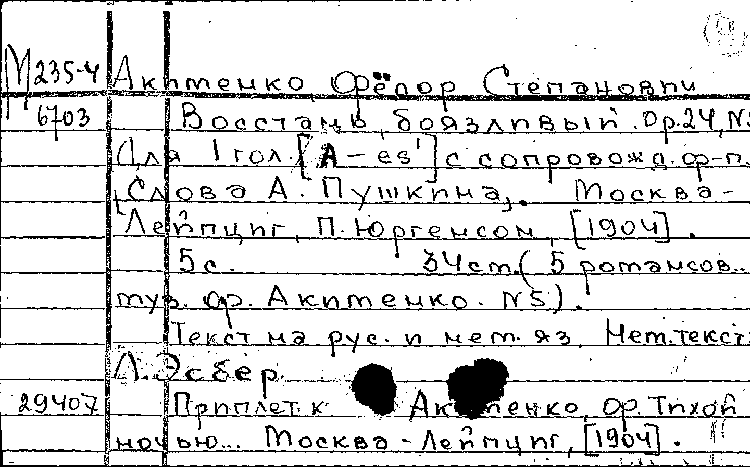 М 235-4 Акименко, Фёдор Степанович
6703 Восстань, боязливый. Ор. 24, №
Для 1 гол. [А – es¹] с сопровожд. ф-п.
Слова А. Пушкина. Москва-
Лейпциг, П. Юргенсон, [1904].
5 с. 34 см. (5 романсов...
муз. Ф. Акименко. №5).
Текст на рус. и нем. яз. Нем. текст:
Л. Эсбер.
29407 Приплет. к Акименко, Ф. Тихой
ночью... Москва - Лейпциг, [1904].